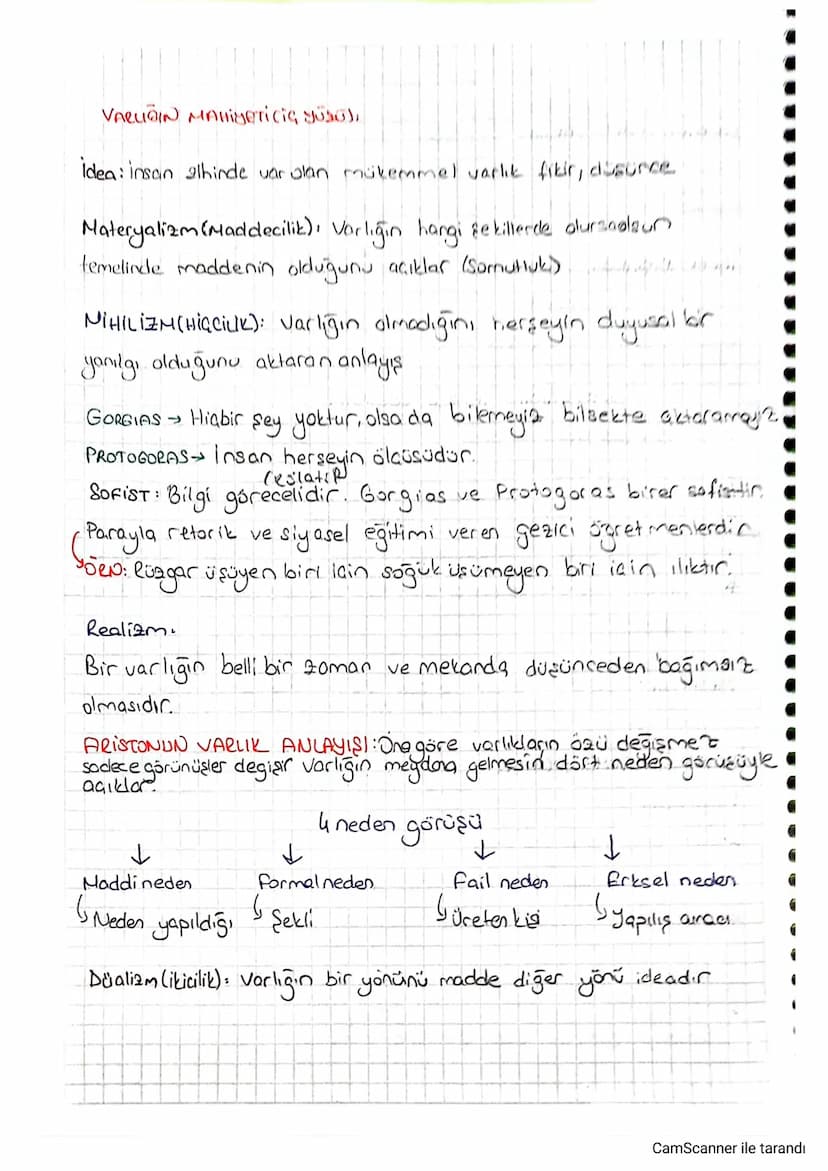 VARLIĞIN MAHİYETİ (İÇ YÜZÜ).
İdea: insan zihinde var olan mükemmel varlık fikir, düşünce
Materyalizm (Maddecilik): Varlığın hangi şekillerde olursaolsun
temelinde maddenin olduğunu açıklar (Somutluk)
NİHİLİZM (HİÇCİLİK): Varlığın olmadığını herşeyin duyusal bir
yanılgı olduğunu aktaran anlayış
GORGIAS → Hiçbir şey yoktur, olsa da bilemeyiz bilsekte aktaramayız
PROTOGORAS → İnsan herşeyin ölçüsüdür.
(relatif)
SOFİST: Bilgi görecelidir. Gorgias ve Protogoras birer sofisttir.
Parayla retorik ve siyasel eğitimi veren gezici öğretmenlerdir
ÖRN: Rüzgar üşüyen biri için soğuk üşümeyen biri için ılıktır.
Realizm.
Bir varlığın belli bir zaman ve mekanda düşünceden bağımsız
olmasıdır.
ARİSTONUN VARLIK ANLAYIŞI: Ona göre varlıkların özü değişmez
sadece görünüşler değişir varlığın meydana gelmesin dört neden görüşüyle
açıklar.
4 neden görüşü
↓ ↓ ↓ ↓
Maddi neden Formal neden Fail neden Erksel neden
Neden yapıldığı Şekli Üreten kişi Yapılış amacı
Düalizm (ikicilik): Varlığın bir yönünü madde diğer yönü ideadır
CamScanner ile tarandı